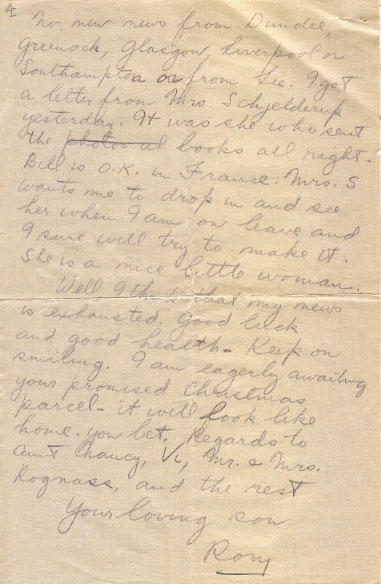 4
No new news from Dundee,
Greenock, Glasgow, Liverpool or
Southampton or from Sis. I got
a letter from Mrs. Schjelderup
yesterday. It was she who sent
the photos al books all right-
Bill is O.K. in France. Mrs. S
wants me to drop in and see
her when I am on leave and
I sure will try to make it.
She is a nice little woman.
Well I think that my news
is exhausted. Good luck
and good health- Keep on
smiling. I am eagerly awaiting
your promised Christmas
parcel- it will look like
home. you bet. Regards to
Aunt Chancy, Vi, Mr. & Mrs.
Rognass, and the rest
Your loving son
Rory